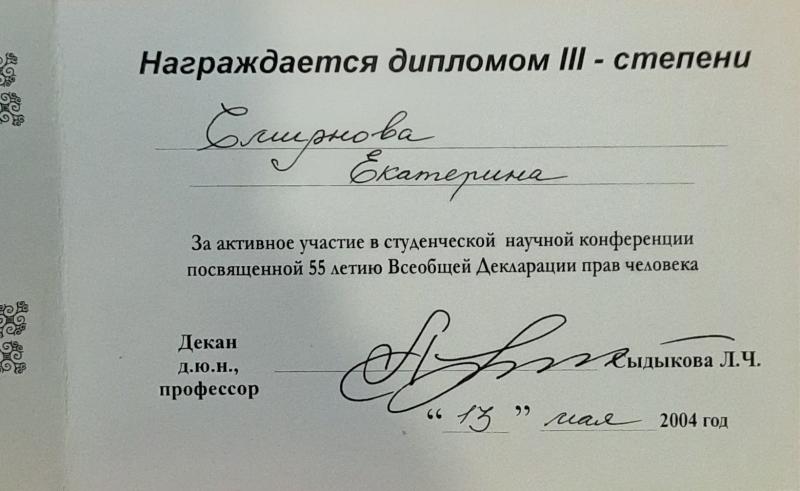 Награждается дипломом III - степени
Смирнова
Екатерина
За активное участие в студенческой научной конференции
посвященной 55 летию Всеобщей Декларации прав человека
Декан
д.ю.н.,
профессор
Сыдыкова Л.Ч.
“ 13 ” мая 2004 год